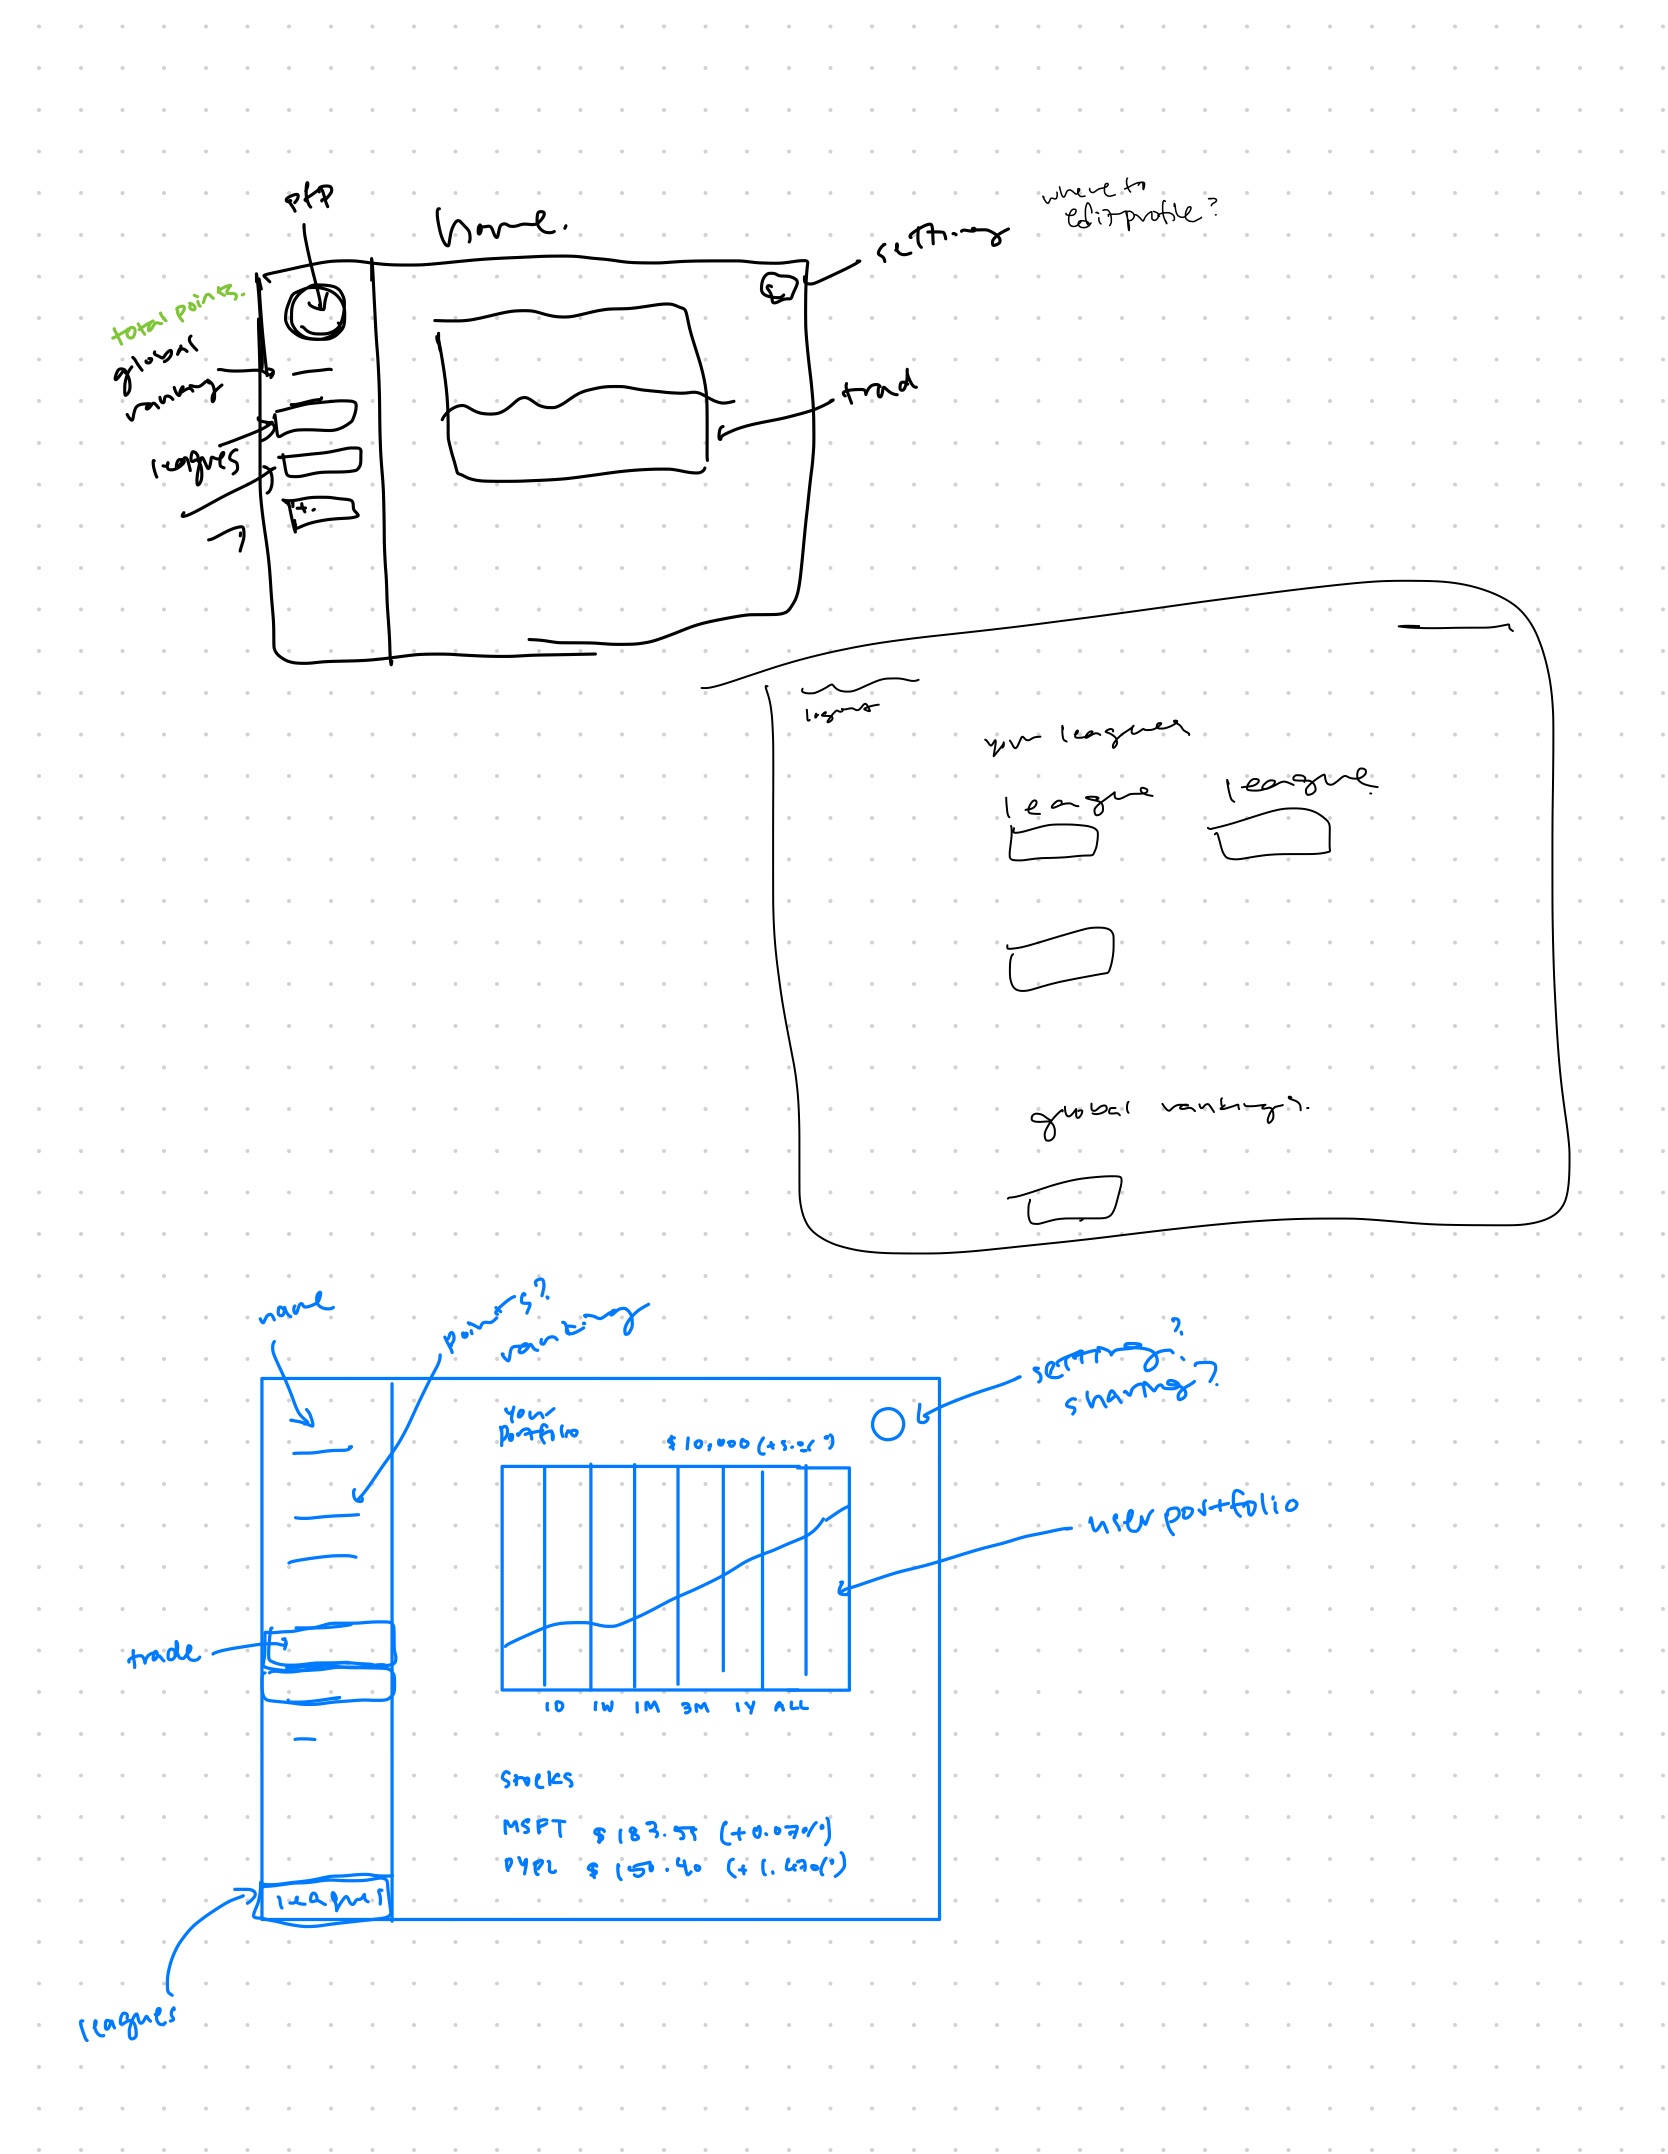 pfp
home.
where to
edit profile?
setting
total points.
global
ranking
trad
leagues
+.
your leagues
league
league
global rankings.
name
points?
ranking
setting?
sharing?
your
portfolio
$10,000
user portfolio
trade
1D 1W 1M 3M 1Y ALL
stocks
MSFT $183.55 (+0.07%)
PYPL $150.40
leagues
leagues